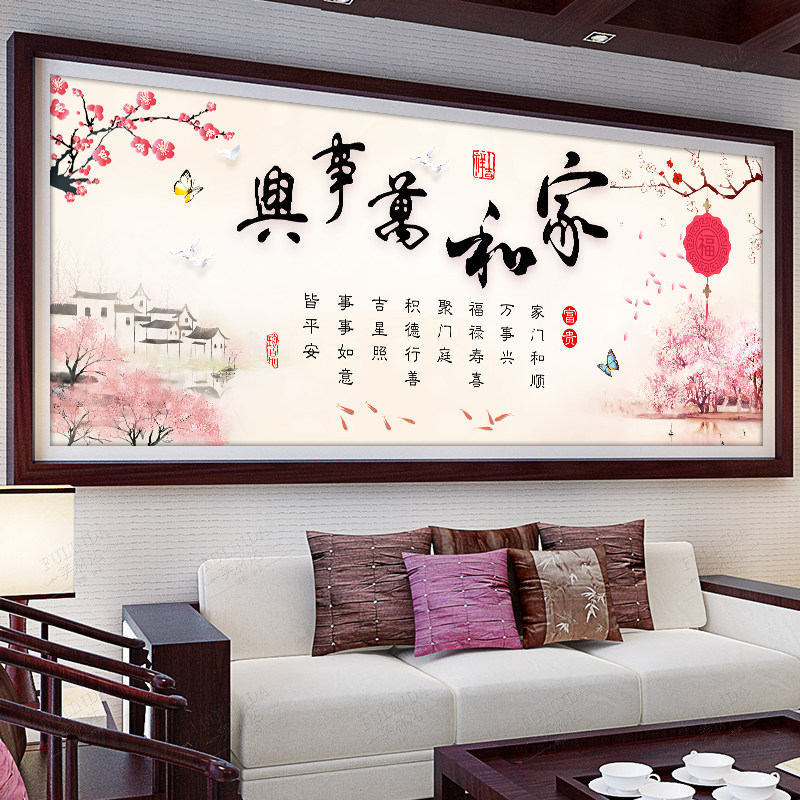 家和萬事興
吉祥
福
富贵
家门和顺
万事兴
福禄寿喜
聚门庭
积德行善
吉星照
事事如意
皆平安